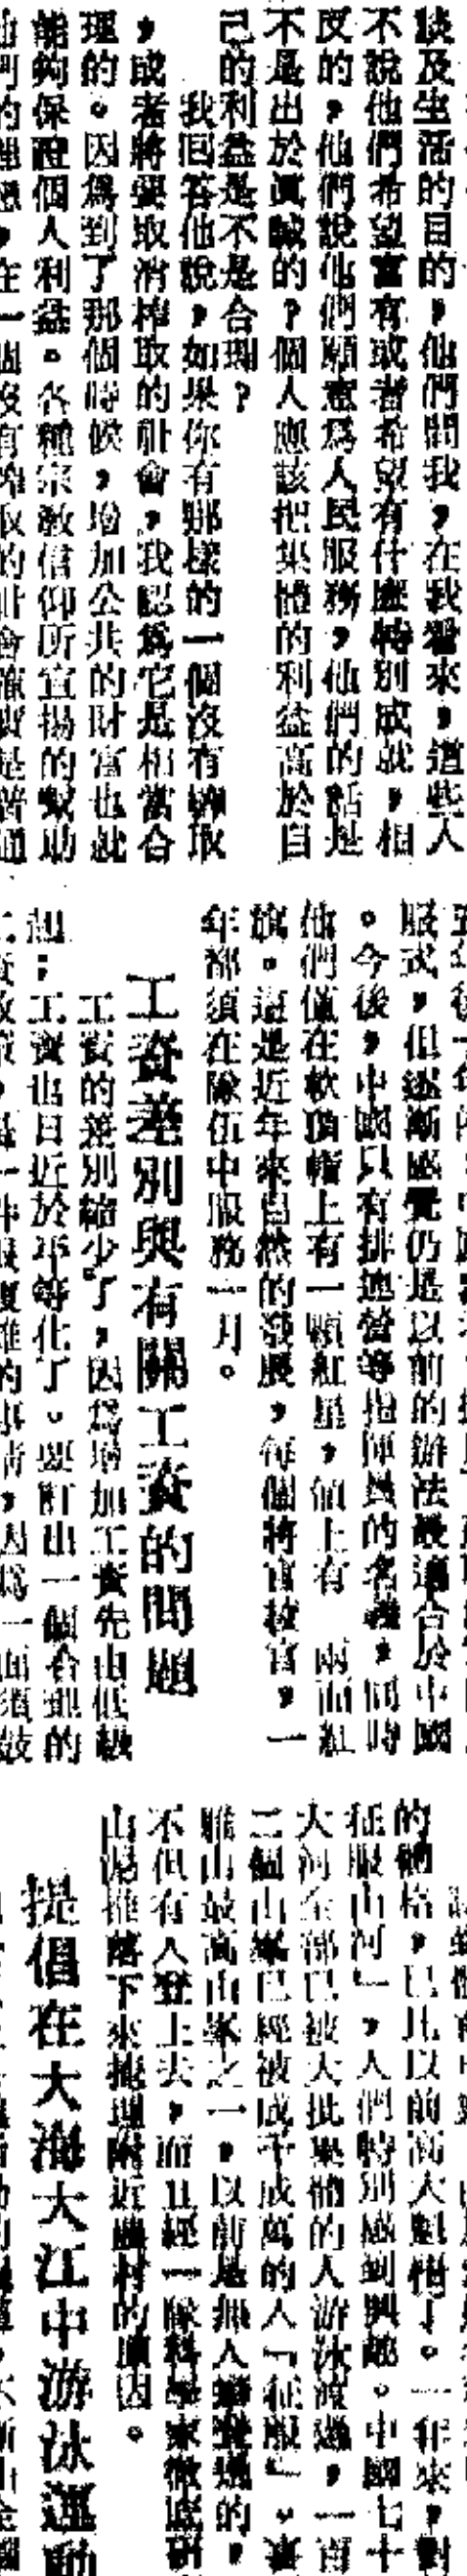 談及生活的目的，他們問我，在我看來，這些人
不說他們希望富有或者希望有什麼特別成就，相
反的，他們說他們願意爲人民服務，他們的話是
不是出於眞誠的？個人應該把集體的利益高於自
己的利益是不是合理？
我回答他說，如果你有那樣的一個沒有榨取
，或者將要取消榨取的社會，我認爲它是相當合
理的。因爲到了那個時候，增加公共的財富也就
能夠保證個人利益。各種宗敎信仰所宣揚的幫助
在一個沒有榨取的社會確實是普通
服式，但逐漸感覺仍是以前的辦法最適合於中國
。今後，中國只有排連營等指揮員的名義，同時
他們僅在軟頂帽上有一顆紅星，領上有 兩面紅
旗。這是近年來自然的發展，每個將官校官，一
年都須在隊伍中服務一月。
工資差別與有關工資的問題
工資的差別縮少了，因爲增加工資先由低級
起；工資也日近於平等化了。要訂出一個合理的
是一件很複雜的事情，因爲一面須鼓
的體格，已比以前高大魁梧了。一年來，對
征服山河」，人們特別感到興趣。中國七十
大河全部已被大批集體的人游泳渡過，一百
二個山峯已經被成千成萬的人「征服」。
雕山最高山峯之一，以前是無人攀登過的，
不但有人登上去，而且經一隊科學家徹底研
山泥推落下來掩埋附近農村的原因。
提倡在大海大江中游泳運動